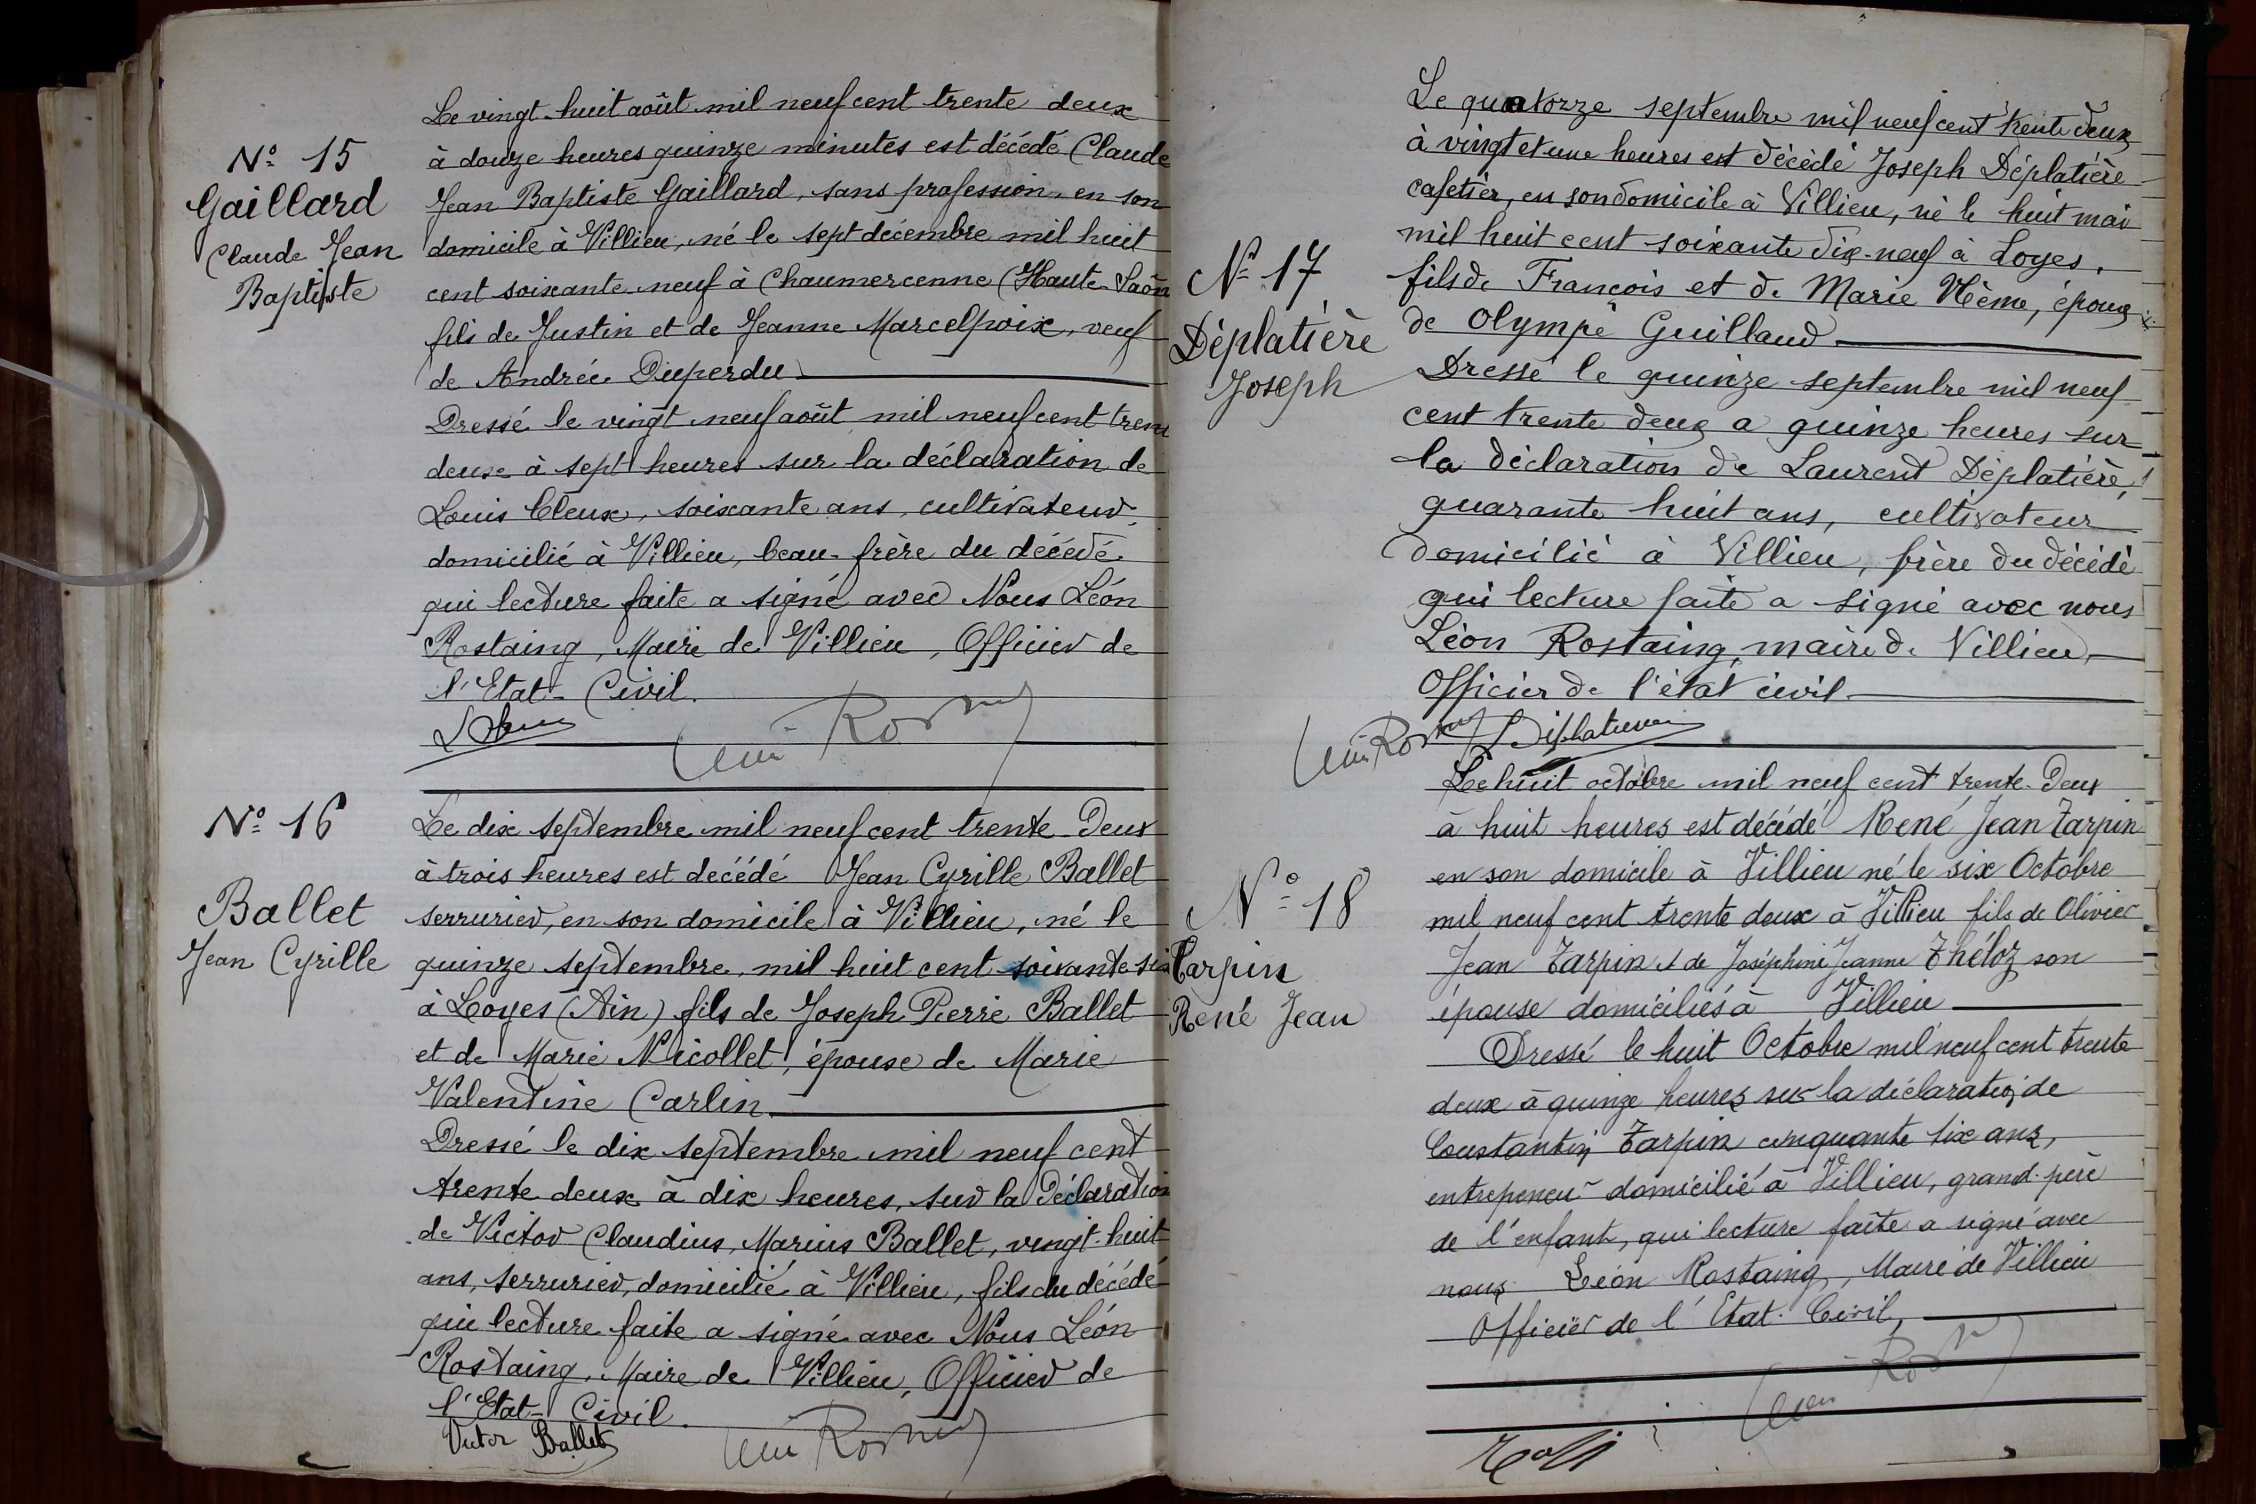 N° 15
Gaillard
Claude Jean
Baptiste
Le vingt-huit août mil neuf cent trente deux
à douze heures quinze minutes est décédé Claude
Jean Baptiste Gaillard, sans profession, en son
domicile à Villieu, né le sept décembre mil huit
cent soixante-neuf à Chaumercenne (Haute-Saôn
fils de Justin et de Jeanne Marcelpoix, veuf
de Andrée Duperdu
Dressé le vingt neuf août mil neuf cent tren
deux à sept heures sur la déclaration de
Louis Cleux, soixante ans, cultivateur,
domicilié à Villieu, beau-frère du décédé
qui lecture faite a signé avec Nous Léon
Rostaing, Maire de Villieu, Officier de
l'Etat-Civil.
N° 16
Ballet
Jean Cyrille
Le dix septembre mil neuf cent trente-deux
à trois heures est décédé Jean Cyrille Ballet
serrurier, en son domicile à Villieu, né le
quinze septembre mil huit cent soixante-six
à Loyes (Ain) fils de Joseph Pierre Ballet
et de Marie Nicollet, épouse de Marie
Valentine Carlin.
Dressé le dix septembre mil neuf cent
trente deux à dix heures, sur la déclaration
de Victor Claudius, Marius Ballet, vingt-huit
ans, serrurier, domicilié à Villieu, fils du décédé
qui lecture faite a signé avec Nous Léon
Rostaing, Maire de Villieu, Officier de
l'Etat-Civil.
Victor Ballet
N° 17
Déplatière
Joseph
Le quatorze septembre mil neuf cent trente deux
à vingt et une heures est décédé Joseph Déplatière
cafetier, en son domicile à Villieu, né le huit mai
mil huit cent soixante dix-neuf à Loyes,
fils de François et de Marie Nême, époux
de Olympe Guilland
Dressé le quinze septembre mil neuf
cent trente deux a quinze heures sur
la déclaration de Laurent Déplatière,
quarante huit ans, cultivateur
domicilié à Villieu, frère du décédé
qui lecture faite a signé avec nous
Léon Rostaing, maire de Villieu,
Officier de l'état civil.
Déplatière
N° 18
Tarpin
René Jean
Le huit octobre mil neuf cent trente-deux
à huit heures est décédé René Jean Tarpin
en son domicile à Villieu né le six Octobre
mil neuf cent trente deux à Villieu fils de Olivier
Jean Tarpin et de Joséphine Jeanne Théloz son
épouse domiciliés à Villieu
Dressé le huit Octobre mil neuf cent trente
deux à quinze heures sur la déclaration de
Constantin Tarpin cinquante six ans,
entrepeneur domicilié à Villieu, grand-père
de l'enfant, qui lecture faite a signé avec
nous Léon Rostaing, Maire de Villieu
Officier de l'Etat-Civil,